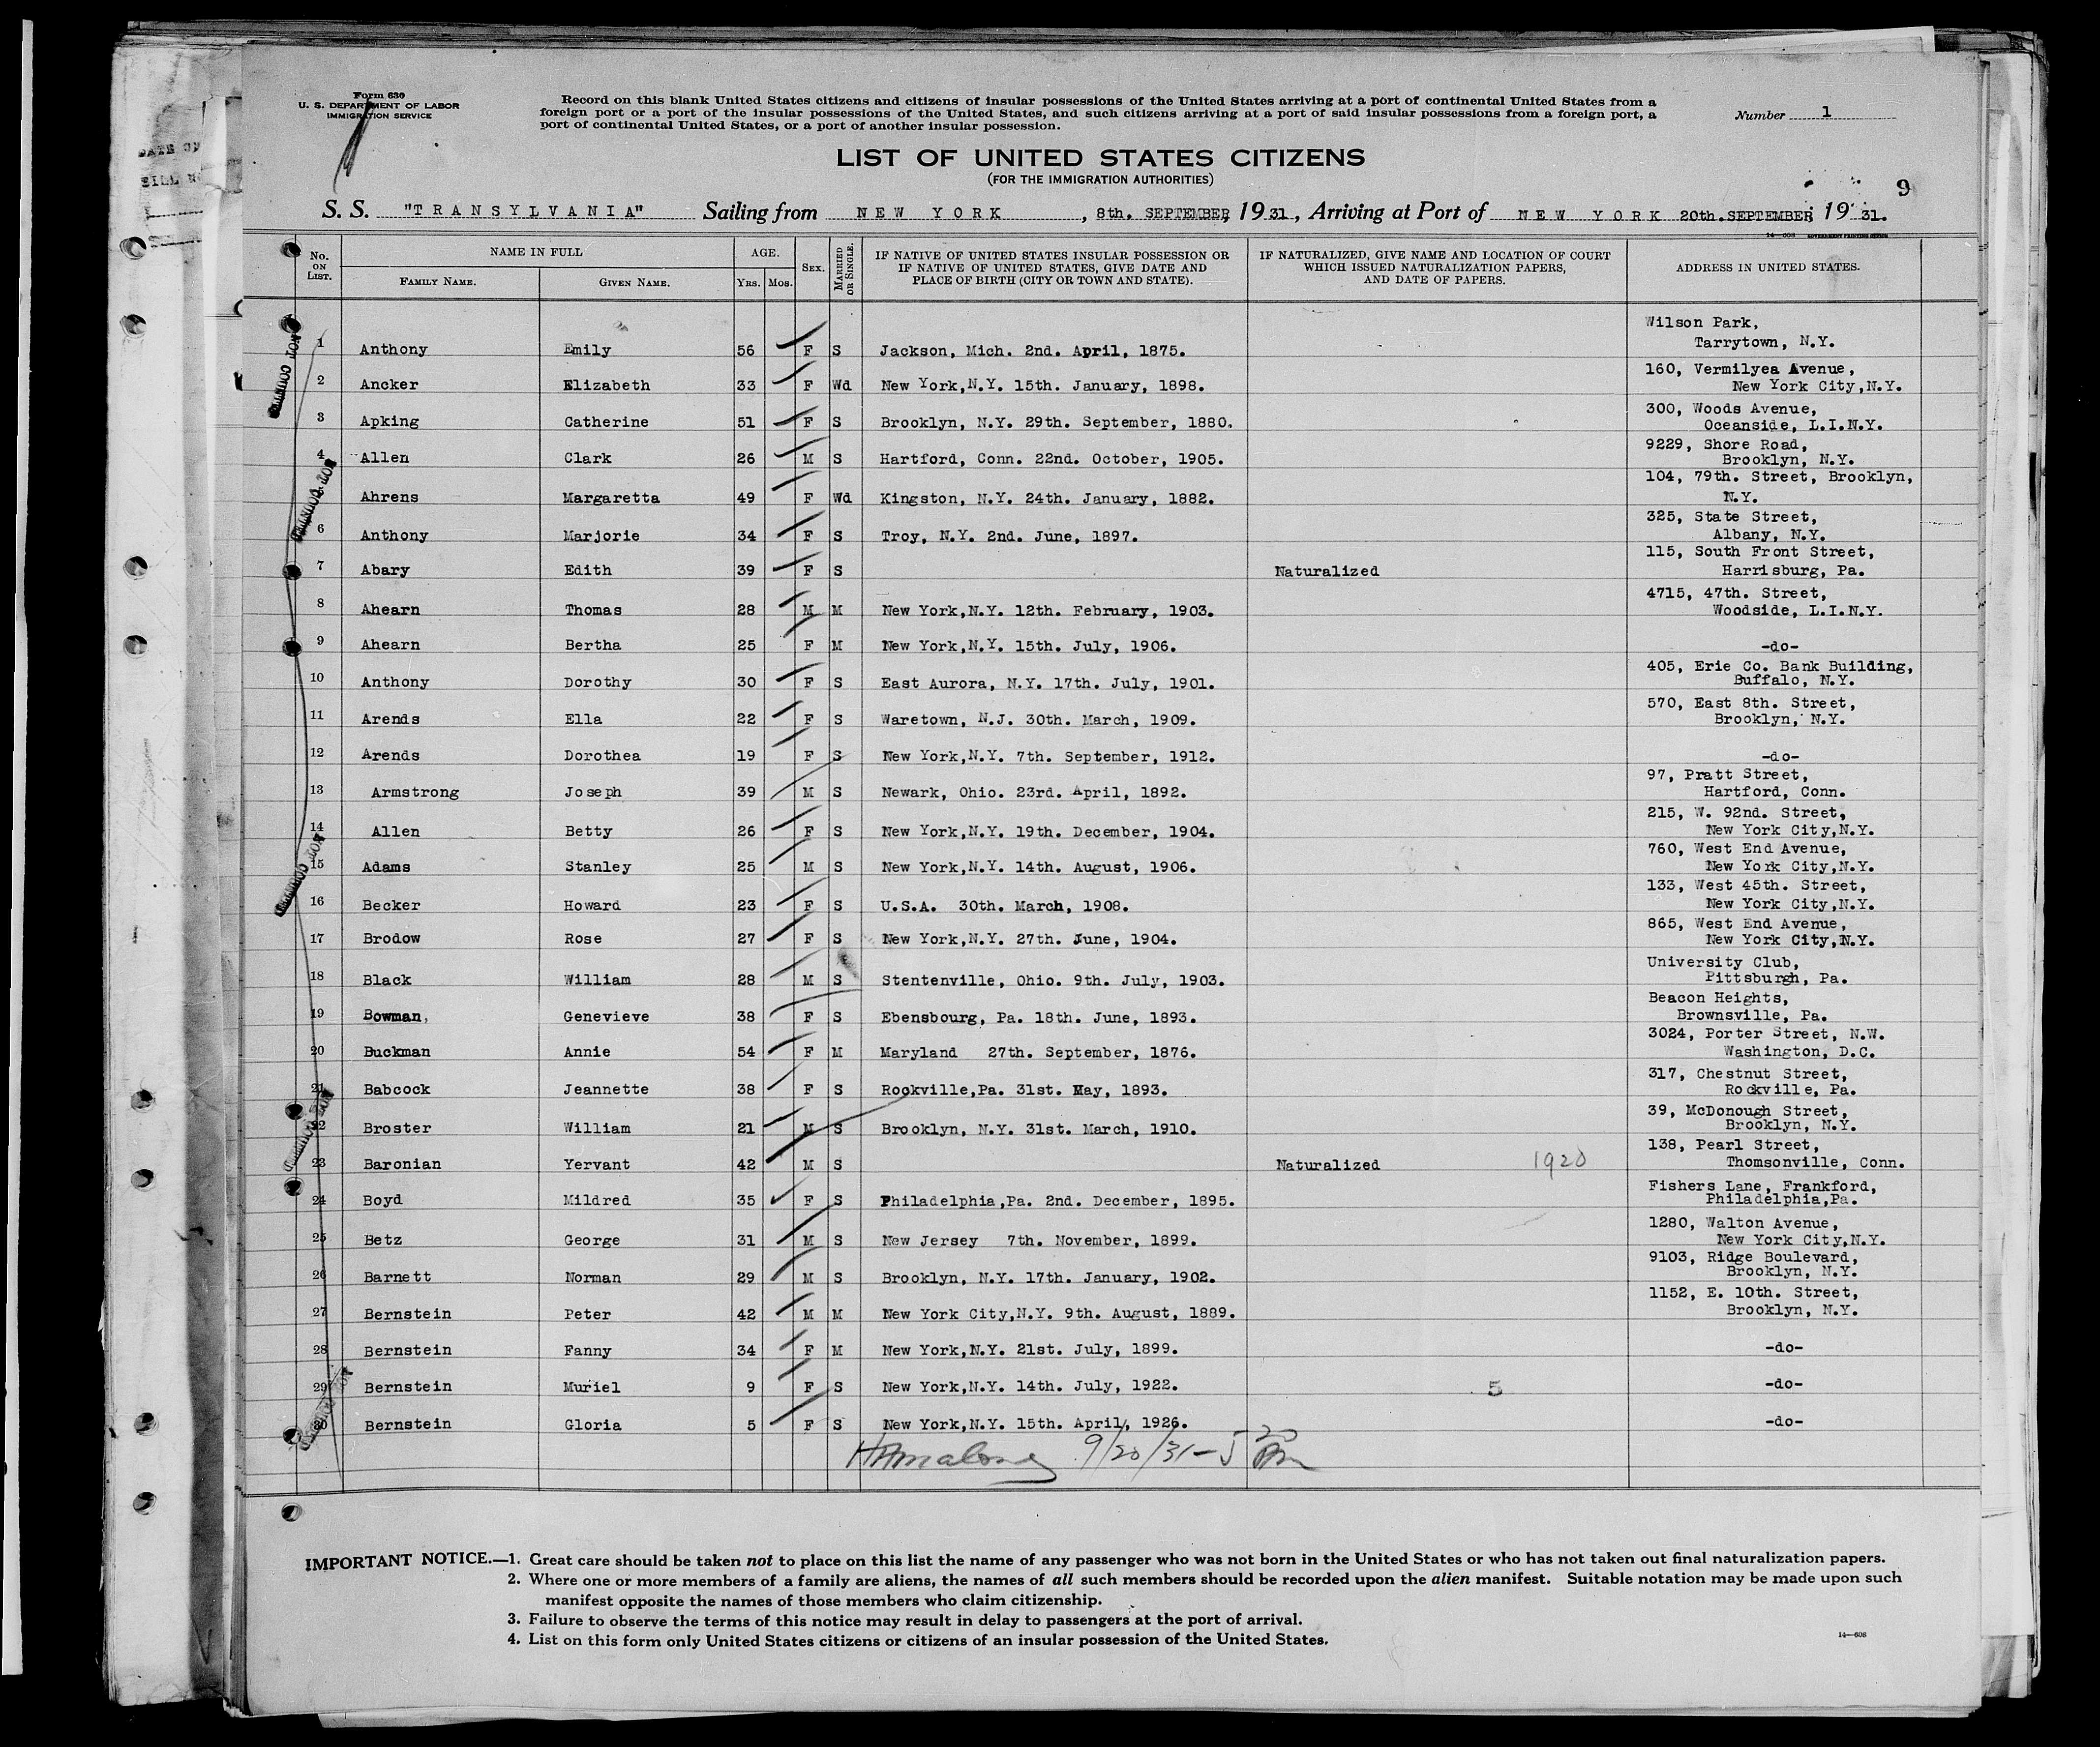 Form 630
U. S. DEPARTMENT OF LABOR
IMMIGRATION SERVICE
Record on this blank United States citizens and citizens of insular possessions of the United States arriving at a port of continental United States from a
foreign port or a port of the insular possessions of the United States, and such citizens arriving at a port of said insular possessions from a foreign port, a
port of continental United States, or a port of another insular possession.
Number 1
LIST OF UNITED STATES CITIZENS
(FOR THE IMMIGRATION AUTHORITIES)
9
S. S. "TRANSYLVANIA" Sailing from NEW YORK, 8th. SEPTEMBER, 1931, Arriving at Port of NEW YORK 20th. SEPTEMBER 1931.
14—608 GOVERNMENT PRINTING OFFICE
No. ON LIST. NAME IN FULL FAMILY NAME. GIVEN NAME. AGE. YRS. MOS. SEX. MARRIED OR SINGLE. IF NATIVE OF UNITED STATES INSULAR POSSESSION OR IF NATIVE OF UNITED STATES, GIVE DATE AND PLACE OF BIRTH (CITY OR TOWN AND STATE). IF NATURALIZED, GIVE NAME AND LOCATION OF COURT WHICH ISSUED NATURALIZATION PAPERS, AND DATE OF PAPERS. ADDRESS IN UNITED STATES.
Wilson Park,
1 Anthony Emily 56 F S Jackson, Mich. 2nd. April, 1875. Tarrytown, N.Y.
160, Vermilyea Avenue,
2 Ancker Elizabeth 33 F Wd New York,N.Y. 15th. January, 1898. New York City,N.Y.
300, Woods Avenue,
3 Apking Catherine 51 F S Brooklyn, N.Y. 29th. September, 1880. Oceanside, L.I.N.Y.
9229, Shore Road,
4 Allen Clark 26 M S Hartford, Conn. 22nd. October, 1905. Brooklyn, N.Y.
104, 79th. Street, Brooklyn,
Ahrens Margaretta 49 F Wd Kingston, N.Y. 24th. January, 1882. N.Y.
325, State Street,
6 Anthony Marjorie 34 F S Troy, N.Y. 2nd. June, 1897. Albany, N.Y.
115, South Front Street,
7 Abary Edith 39 F S Naturalized Harrisburg, Pa.
4715, 47th. Street,
8 Ahearn Thomas 28 M M New York,N.Y. 12th. February, 1903. Woodside, L.I.N.Y.
9 Ahearn Bertha 25 F M New York,N.Y. 15th. July, 1906. -do-
405, Erie Co. Bank Building,
10 Anthony Dorothy 30 F S East Aurora, N.Y. 17th. July, 1901. Buffalo, N.Y.
570, East 8th. Street,
11 Arends Ella 22 F S Waretown, N.J. 30th. March, 1909. Brooklyn, N.Y.
12 Arends Dorothea 19 F S New York,N.Y. 7th. September, 1912. -do-
97, Pratt Street,
13 Armstrong Joseph 39 M S Newark, Ohio. 23rd. April, 1892. Hartford, Conn.
215, W. 92nd. Street,
14 Allen Betty 26 F S New York,N.Y. 19th. December, 1904. New York City,N.Y.
760, West End Avenue,
15 Adams Stanley 25 M S New York,N.Y. 14th. August, 1906. New York City,N.Y.
133, West 45th. Street,
16 Becker Howard 23 F S U.S.A. 30th. March, 1908. New York City,N.Y.
865, West End Avenue,
17 Brodow Rose 27 F S New York,N.Y. 27th. June, 1904. New York City,N.Y.
University Club,
18 Black William 28 M S Stentenville, Ohio. 9th. July, 1903. Pittsburgh, Pa.
Beacon Heights,
19 Bowman, Genevieve 38 F S Ebensbourg, Pa. 18th. June, 1893. Brownsville, Pa.
3024, Porter Street, N.W.
20 Buckman Annie 54 F M Maryland 27th. September, 1876. Washington, D.C.
317, Chestnut Street,
21 Babcock Jeannette 38 F S Rockville,Pa. 31st. May, 1893. Rockville, Pa.
39, McDonough Street,
22 Broster William 21 M S Brooklyn, N.Y. 31st. March, 1910. Brooklyn, N.Y.
138, Pearl Street,
23 Baronian Yervant 42 M S Naturalized 1920 Thomsonville, Conn.
Fishers Lane, Frankford,
24 Boyd Mildred 35 F S Philadelphia,Pa. 2nd. December, 1895. Philadelphia,Pa.
1280, Walton Avenue,
25 Betz George 31 M S New Jersey 7th. November, 1899. New York City,N.Y.
9103, Ridge Boulevard,
26 Barnett Norman 29 M S Brooklyn, N.Y. 17th. January, 1902. Brooklyn, N.Y.
1152, E. 10th. Street,
27 Bernstein Peter 42 M M New York City,N.Y. 9th. August, 1889. Brooklyn, N.Y.
28 Bernstein Fanny 34 F M New York,N.Y. 21st. July, 1899. -do-
29 Bernstein Muriel 9 F S New York,N.Y. 14th. July, 1922. 5 -do-
30 Bernstein Gloria 5 F S New York,N.Y. 15th. April, 1926. -do-
9/20/31 - 5 20 Pm
IMPORTANT NOTICE.—1. Great care should be taken not to place on this list the name of any passenger who was not born in the United States or who has not taken out final naturalization papers.
2. Where one or more members of a family are aliens, the names of all such members should be recorded upon the alien manifest. Suitable notation may be made upon such
manifest opposite the names of those members who claim citizenship.
3. Failure to observe the terms of this notice may result in delay to passengers at the port of arrival.
4. List on this form only United States citizens or citizens of an insular possession of the United States.
14—608